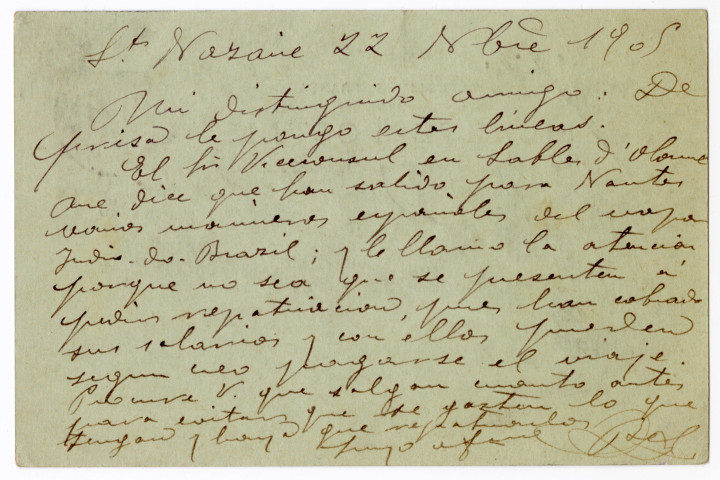 St Nazaire 22 Nbre 1905
Mi distinguido amigo: De
prisa le pongo estas líneas.
El Sr Viceconsul en Sables d'Olonne
me dice que han salido para Nantes
varios marineros españoles del vapor
Indio-do-Brazil; y le llamo la atencion
porque no sea que se presenten á
pedir repatriacion, pues han cobrado
sus salarios y con ellos pueden
segun creo pagarse el viaje.
Procure V. que salgan cuanto antes
para evitar que se gasten lo que
tengan y haya que repatriarlos
Suyo afmo